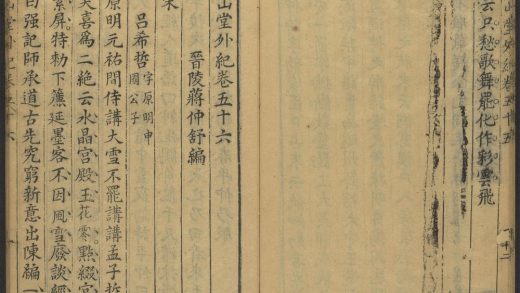 云只愁歌舞罷化作彩雲飛
山堂外紀卷五十六
晉陵蔣仲舒編
宋
呂希哲 字原明申國公子
原明元祐間侍講大雪不罷講講孟子哲
笑喜為二絕云水晶宮殿玉花零點綴宮
素屏特勅下簾延墨客不因風雪廢談經
曰强記師承道古先究窮新意出陳編一